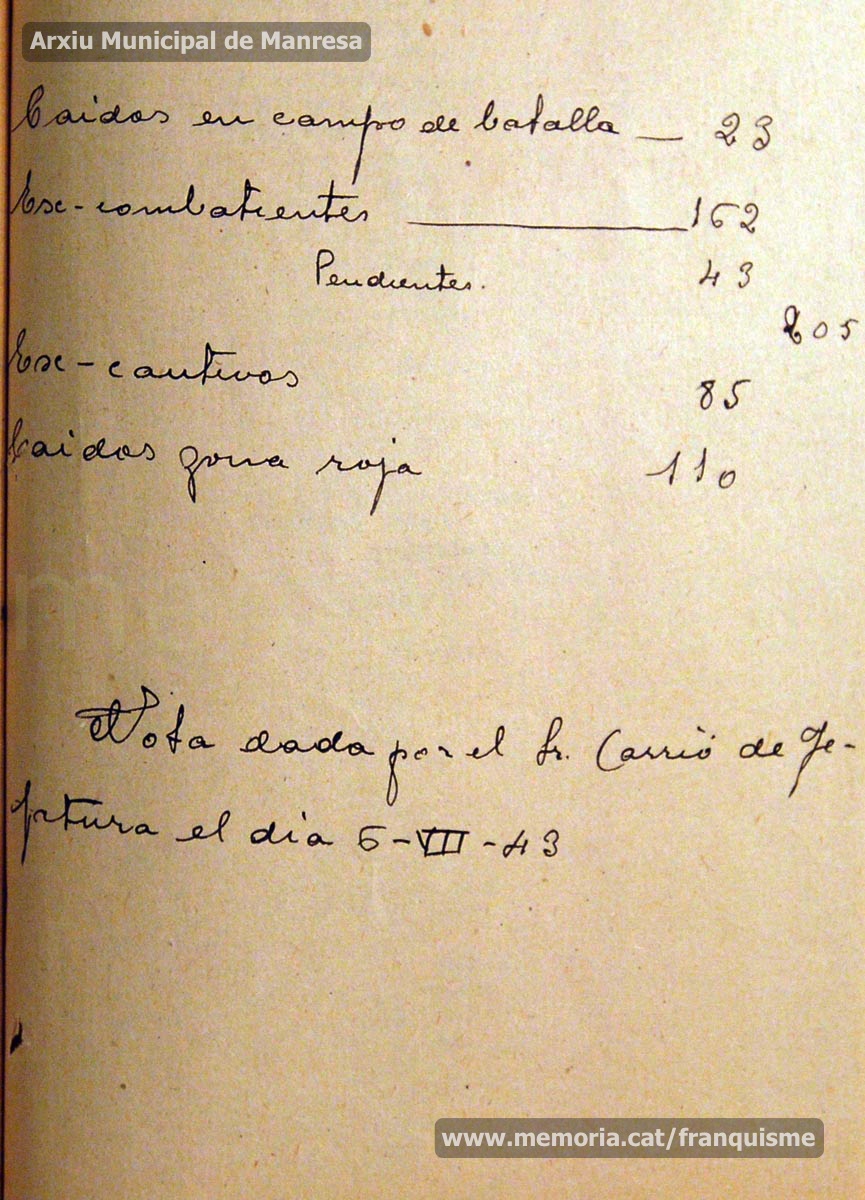 Arxiu Municipal de Manresa
Caidos en campo de batalla — 23
Ex-combatientes — 162
Pendientes. 43
205
Ex-cautivos 85
Caidos zona roja 110
Nota dada por el Sr. Carrió de Je-
fatura el dia 6-VII-43
www.memoria.cat/franquisme